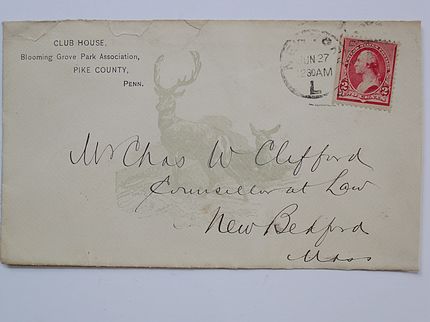 CLUB HOUSE,
Blooming Grove Park Association,
PIKE COUNTY,
PENN.
JUN 27
1230AM
L
2 2
Mr Chas W Clifford
Counsellor at Law
New Bedford
Mass